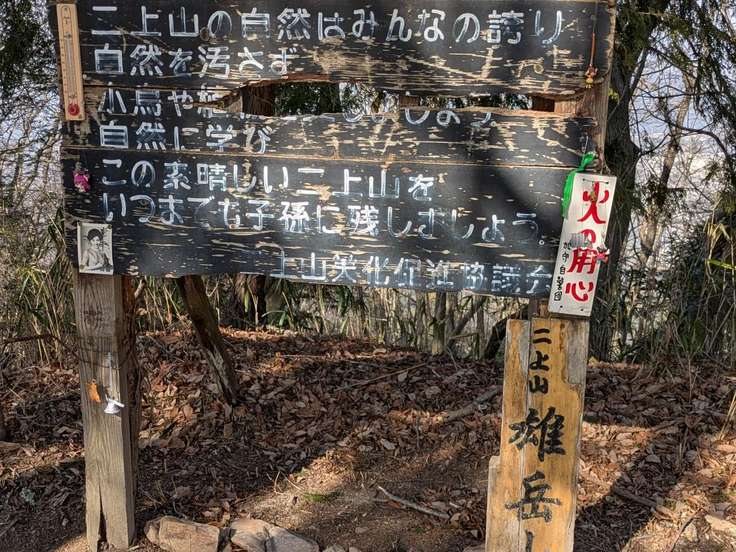 二上山の自然はみんなの誇り
自然を汚さず
小鳥や
しましょう
自然に学び
この素晴しい二上山を
いつまでも子孫に残しましょう。
二上山美化促進協議会
火の用心
加守自警団
二上山
雄岳